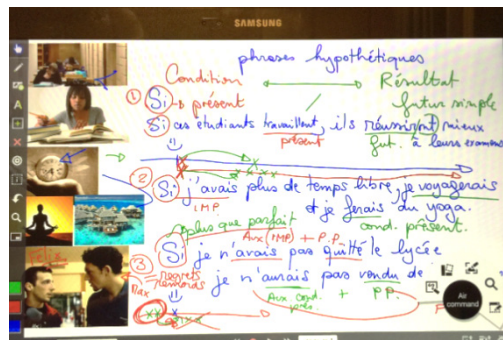 SAMSUNG
phrases hypothétiques
Condition Résultat
① Si → présent futur simple
Si ces étudiants travaillent, ils réussiront mieux
présent fut. à leurs examens
② Si j'avais plus de temps libre, je voyagerais
IMP et je ferais du yoga.
plus que parfait cond. présent.
Aux (IMP) + P.P.
③ Si je n'avais pas quitté le lycée
regrets
remords
je n'aurais pas vendu de
Max
Aux cond. prés. + P.P.
Air
command